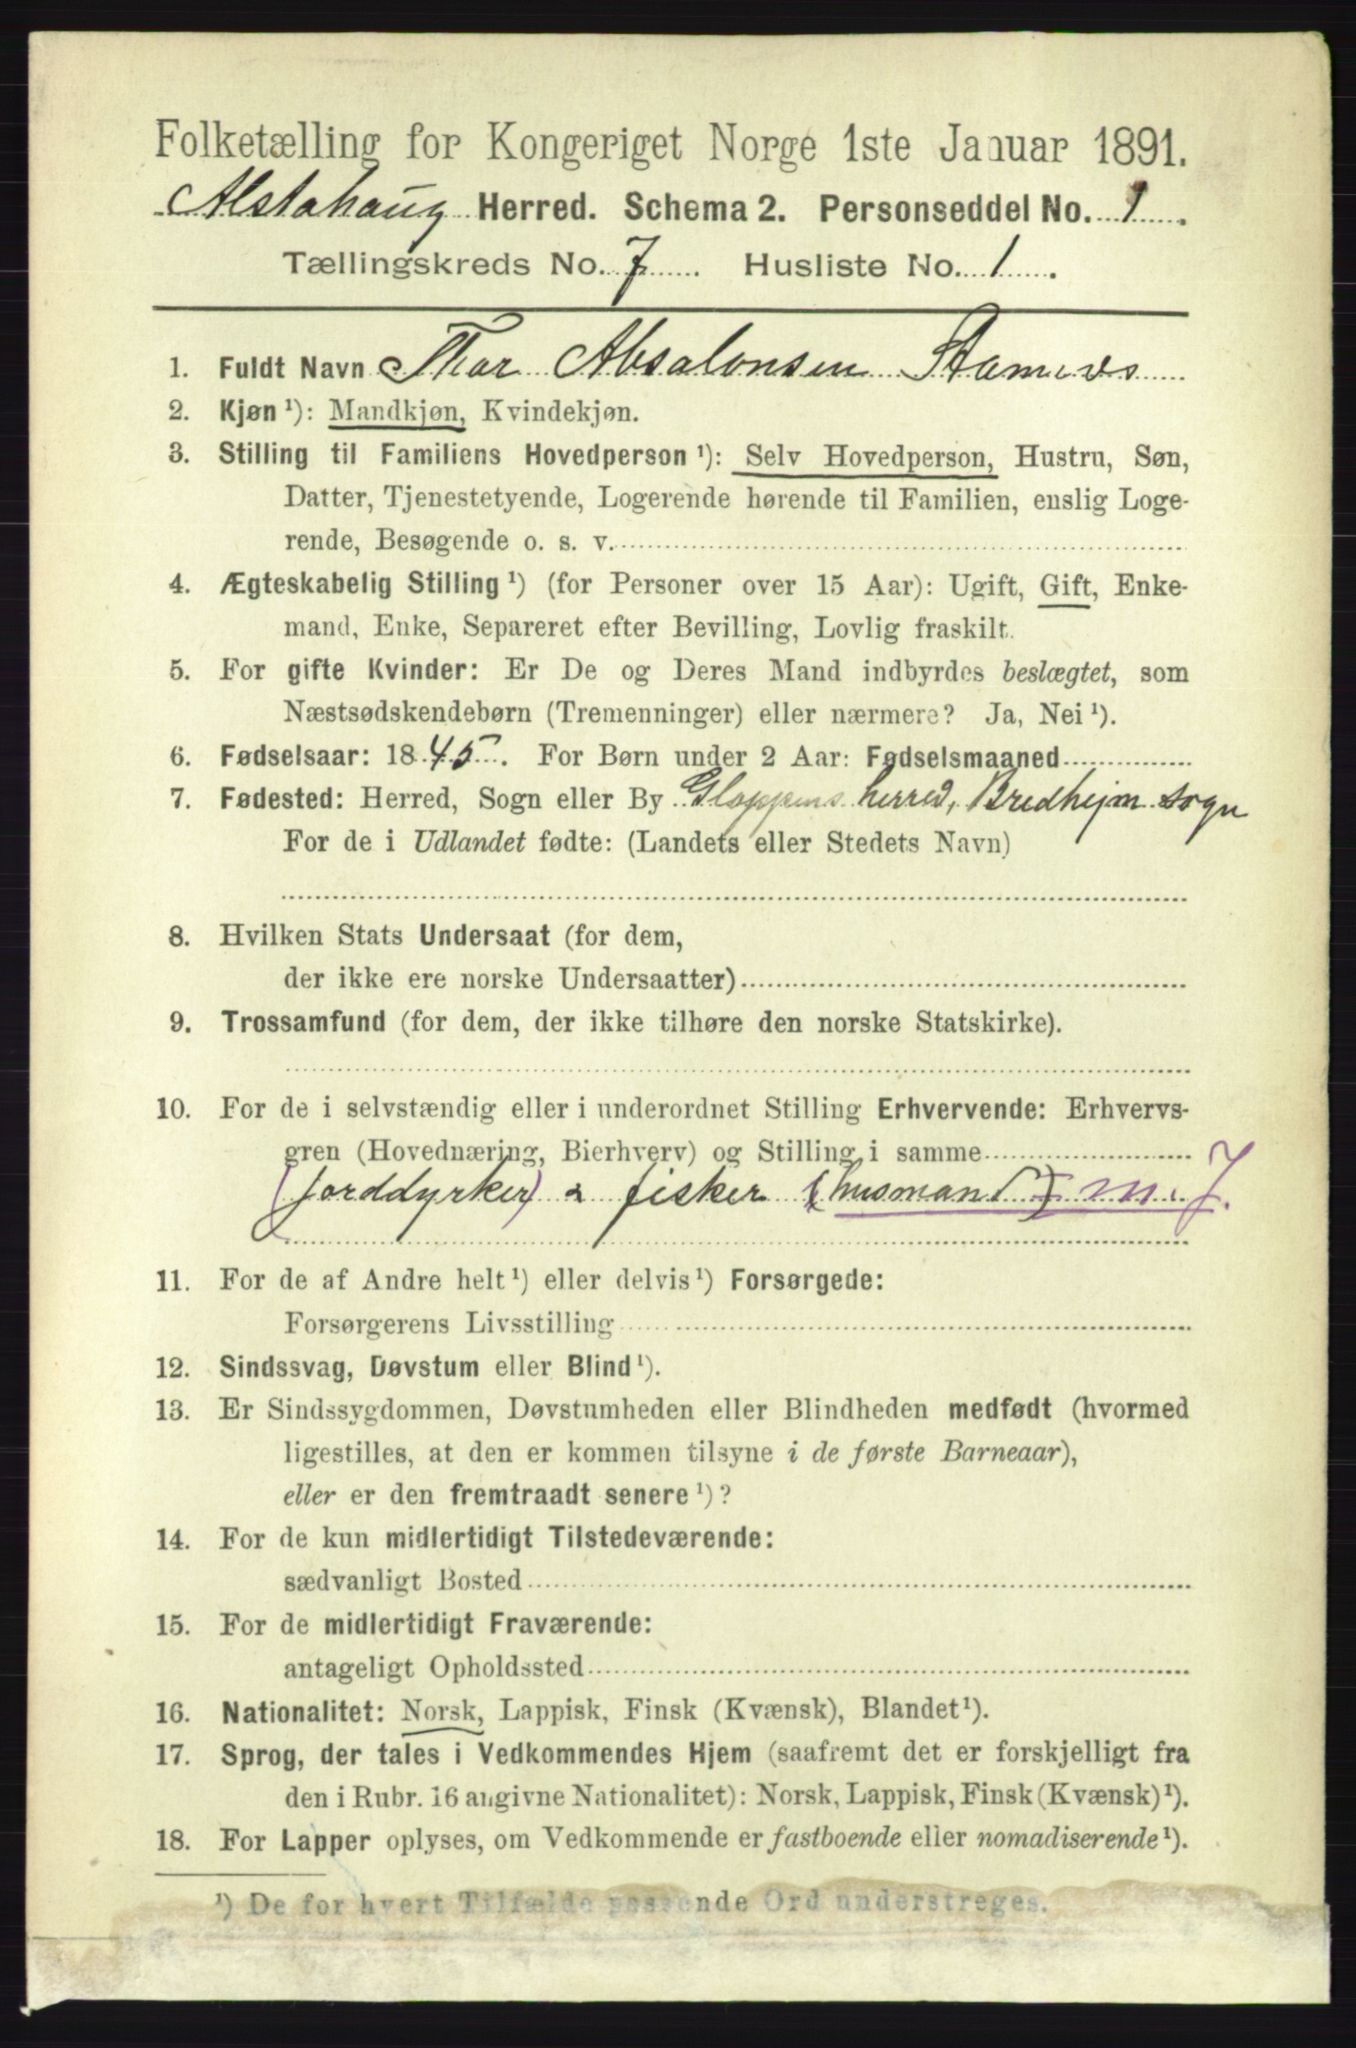 Folketælling for Kongeriget Norge 1ste Januar 1891.
Alstahaug Herred. Schema 2. Personseddel No. 1.
Tællingskreds No. 7. Husliste No. 1.
1. Fuldt Navn Thor Absalonsen
2. Kjøn ¹): Mandkjøn, Kvindekjøn.
3. Stilling til Familiens Hovedperson ¹): Selv Hovedperson, Hustru, Søn,
Datter, Tjenestetyende, Logerende hørende til Familien, enslig Loge-
rende, Besøgende o. s. v.
4. Ægteskabelig Stilling ¹) (for Personer over 15 Aar): Ugift, Gift, Enke-
mand, Enke, Separeret efter Bevilling, Lovlig fraskilt.
5. For gifte Kvinder: Er De og Deres Mand indbyrdes beslægtet, som
Næstsødskendebørn (Tremenninger) eller nærmere? Ja, Nei ¹).
6. Fødselsaar: 1845. For Børn under 2 Aar: Fødselsmaaned
7. Fødested: Herred, Sogn eller By Gloppens herred, Bredhejm sogn
For de i Udlandet fødte: (Landets eller Stedets Navn)
8. Hvilken Stats Undersaat (for dem,
der ikke ere norske Undersaatter)
9. Trossamfund (for dem, der ikke tilhøre den norske Statskirke).
10. For de i selvstændig eller i underordnet Stilling Erhvervende: Erhvervs-
gren (Hovednæring, Bierhverv) og Stilling i samme
(jorddyrker) & fisker (husmand) m. J.
11. For de af Andre helt ¹) eller delvis ¹) Forsørgede:
Forsørgerens Livsstilling
12. Sindssvag, Døvstum eller Blind ¹).
13. Er Sindssygdommen, Døvstumheden eller Blindheden medfødt (hvormed
ligestilles, at den er kommen tilsyne i de første Barneaar),
eller er den fremtraadt senere ¹)?
14. For de kun midlertidigt Tilstedeværende:
sædvanligt Bosted
15. For de midlertidigt Fraværende:
antageligt Opholdssted
16. Nationalitet: Norsk, Lappisk, Finsk (Kvænsk), Blandet ¹).
17. Sprog, der tales i Vedkommendes Hjem (saafremt det er forskjelligt fra
den i Rubr. 16 angivne Nationalitet): Norsk, Lappisk, Finsk (Kvænsk) ¹).
18. For Lapper oplyses, om Vedkommende er fastboende eller nomadiserende ¹).
¹) De for hvert Tilfælde passende Ord understreges.